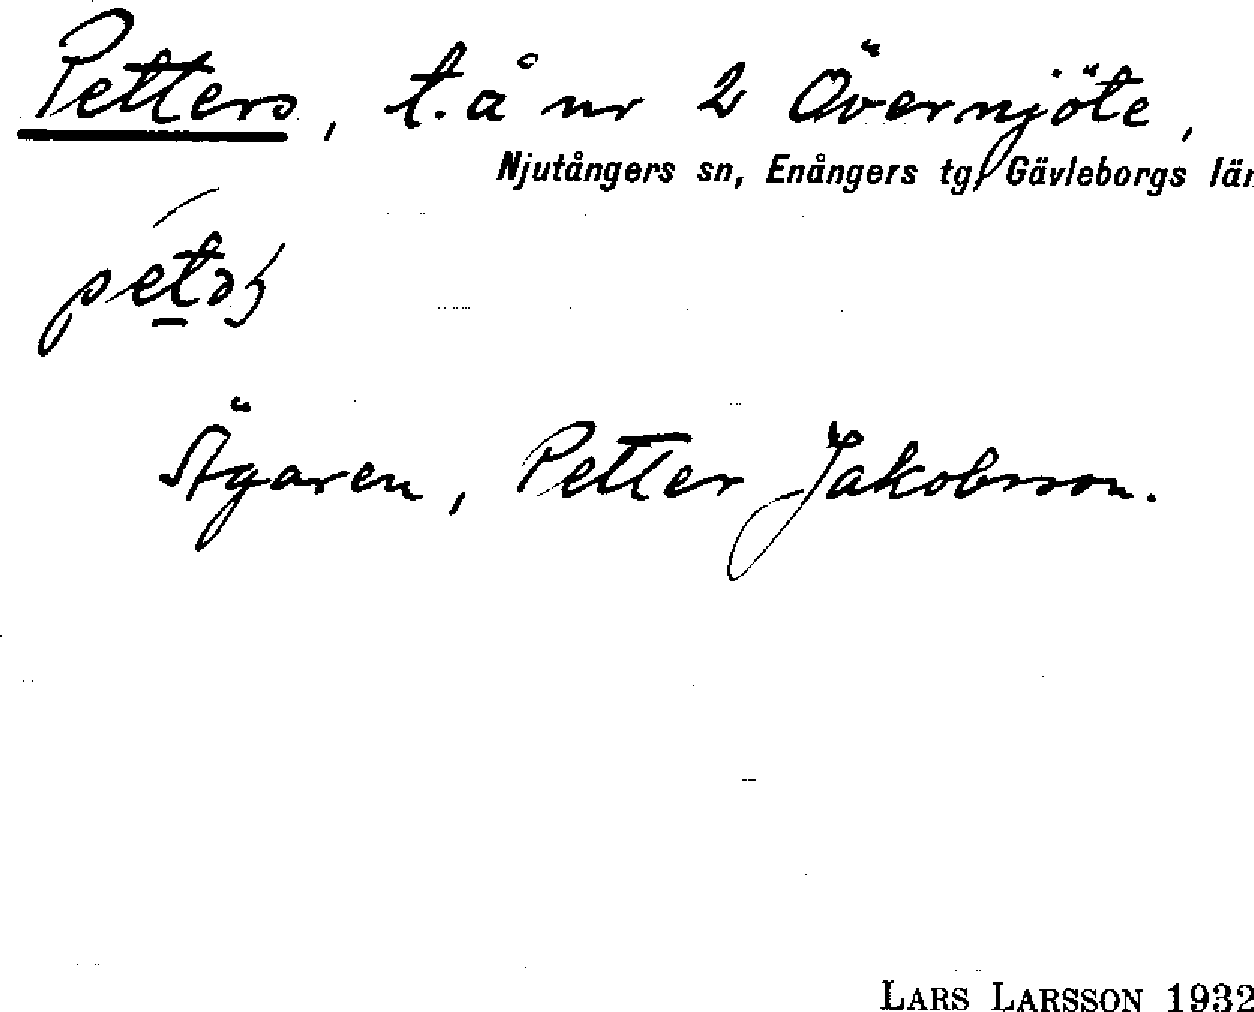 Petters, t. å nr 2 Övernjöte,
Njutångers sn, Enångers tg, Gävleborgs län
Ägaren, Petter Jakobsson.
LARS LARSSON 1932